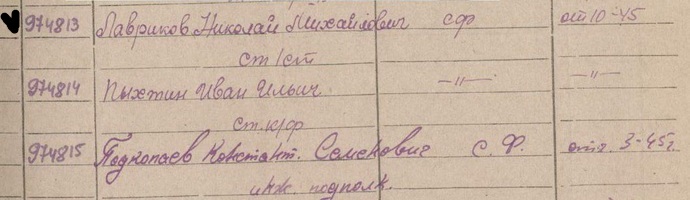 974813 Лавриков Николай Михайлович сф от 10-45
ст/ст
974814 Пыхтин Иван Ильич —〃— —〃—
ст. к/ф
974815 Подкопаев Констант. Семенович С. Ф. от 3-45г.
инж. подполк.